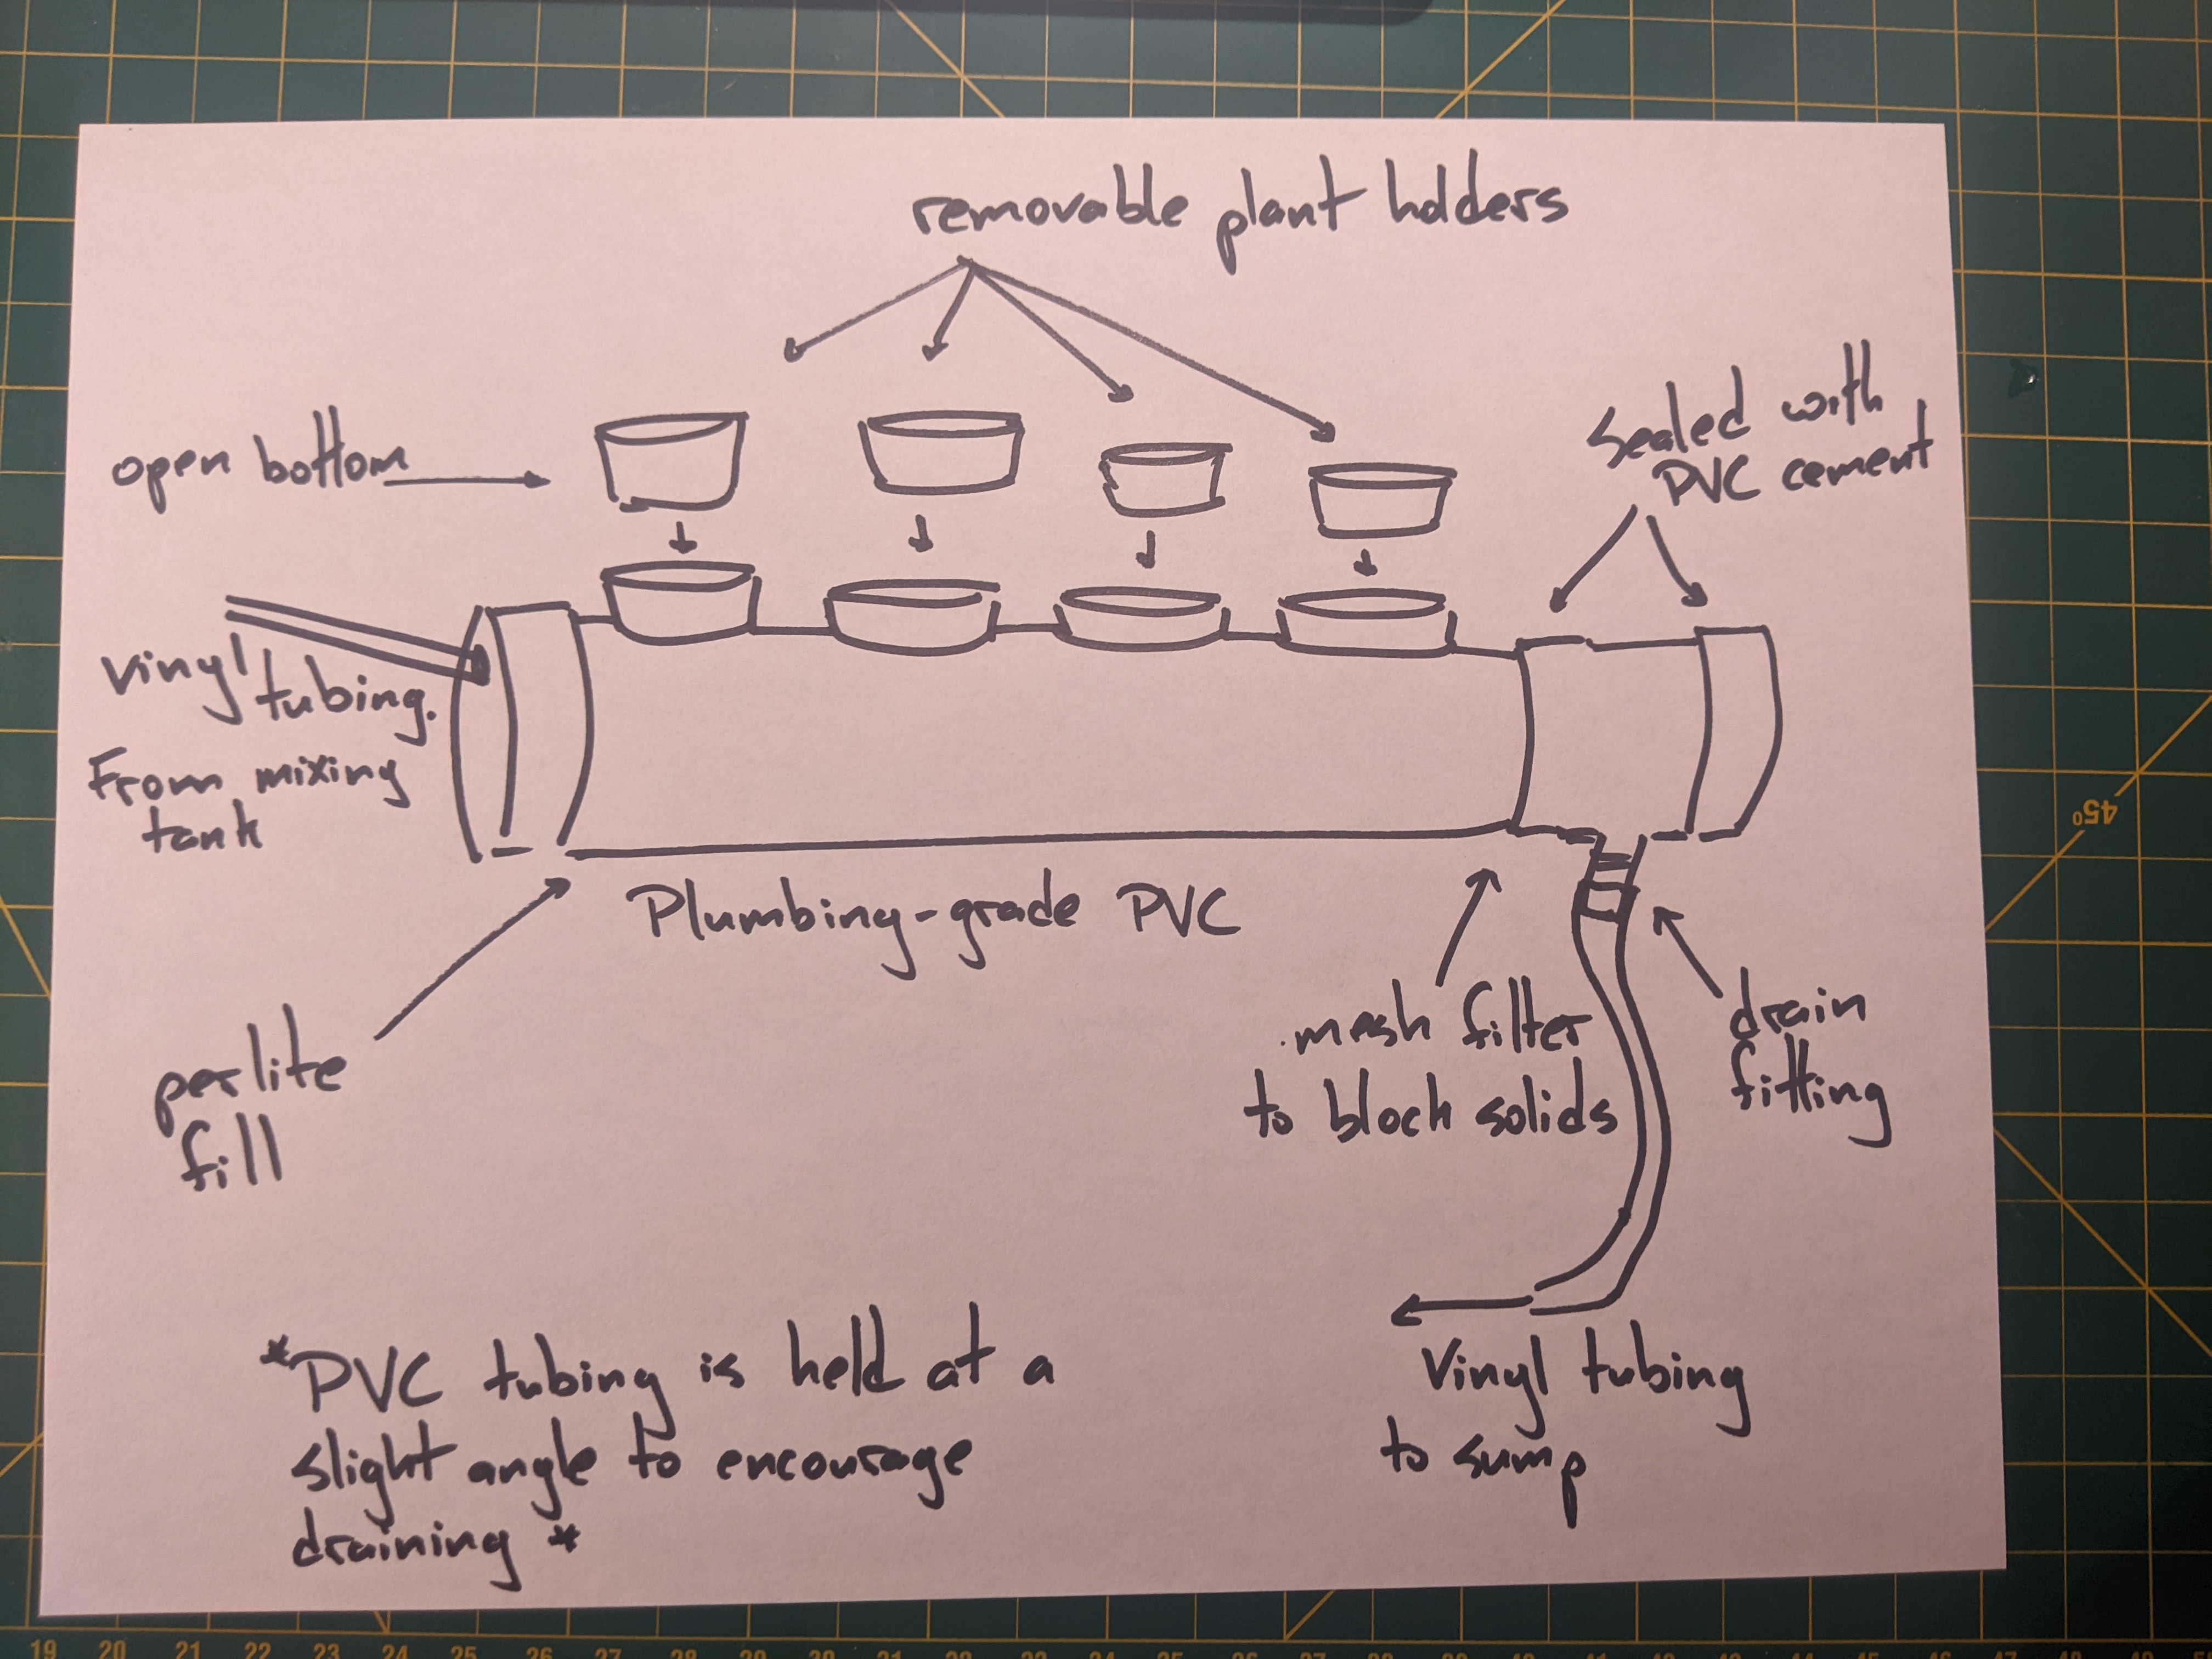 removable plant holders
open bottom
Sealed with
PVC cement
vinyl tubing.
From mixing
tank
Plumbing-grade PVC
perlite
fill
mesh filter
to block solids
drain
fitting
Vinyl tubing
to sump
*PVC tubing is held at a
slight angle to encourage
draining *
45°
19 20 21 22 23 24 25 26